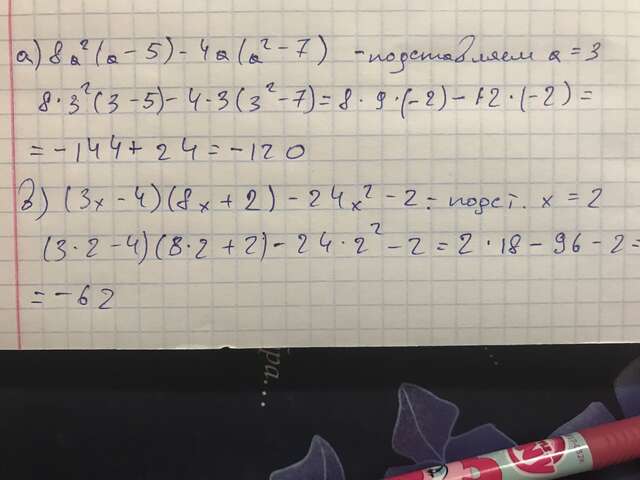 а) 8a²(a - 5) - 4a(a² - 7) - подставляем a = 3
8·3²(3 - 5) - 4·3(3² - 7) = 8·9·(-2) - 12·(-2) =
= -144 + 24 = -120
в) (3x - 4)(8x + 2) - 24x² - 2 = подст. x = 2
(3·2 - 4)(8·2 + 2) - 24·2² - 2 = 2·18 - 96 - 2 =
= -62
ра...